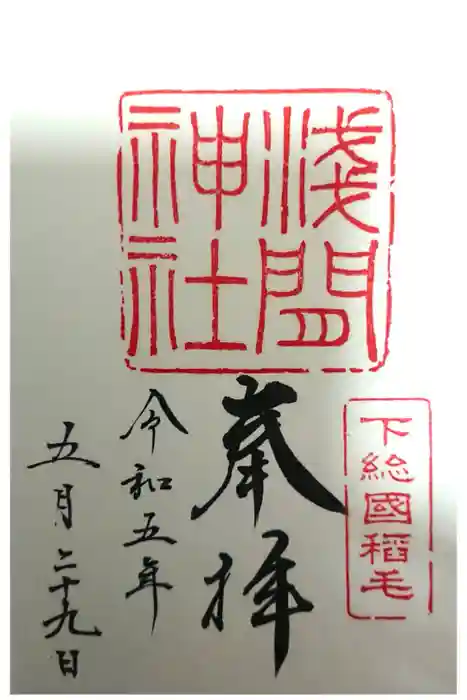 淺間
神社
下総國稻毛
奉拝
令和五年
五月二十九日